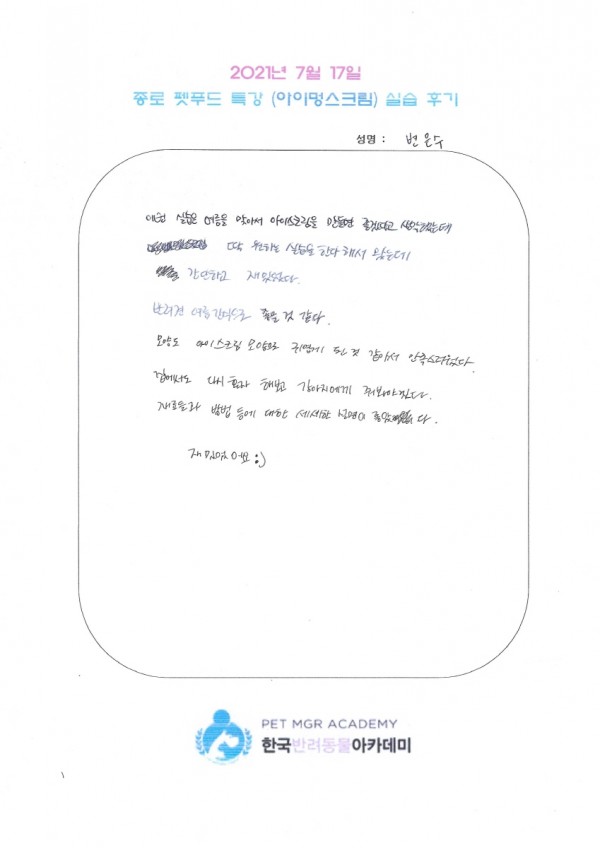 2021년 7월 17일
종로 펫푸드 특강 (아이멍스크림) 실습 후기
성명 : 변은수
이번 실습은 여름을 맞아서 아이스크림을 만들면 좋겠다고 생각했는데
딱 원하는 실습을 한다 해서 왔는데
간편하고 재밌었다.
반려견 여름간식으로 좋을 것 같다.
모양도 아이스크림 모양으로 귀엽게 된 것 같아서 만족스러웠다.
집에서도 다시 혼자 해보고 강아지에게 줘봐야겠다.
재료들과 방법 등에 대한 세세한 설명이 좋았다.
재밌었어요 :)
PET MGR ACADEMY
한국반려동물아카데미